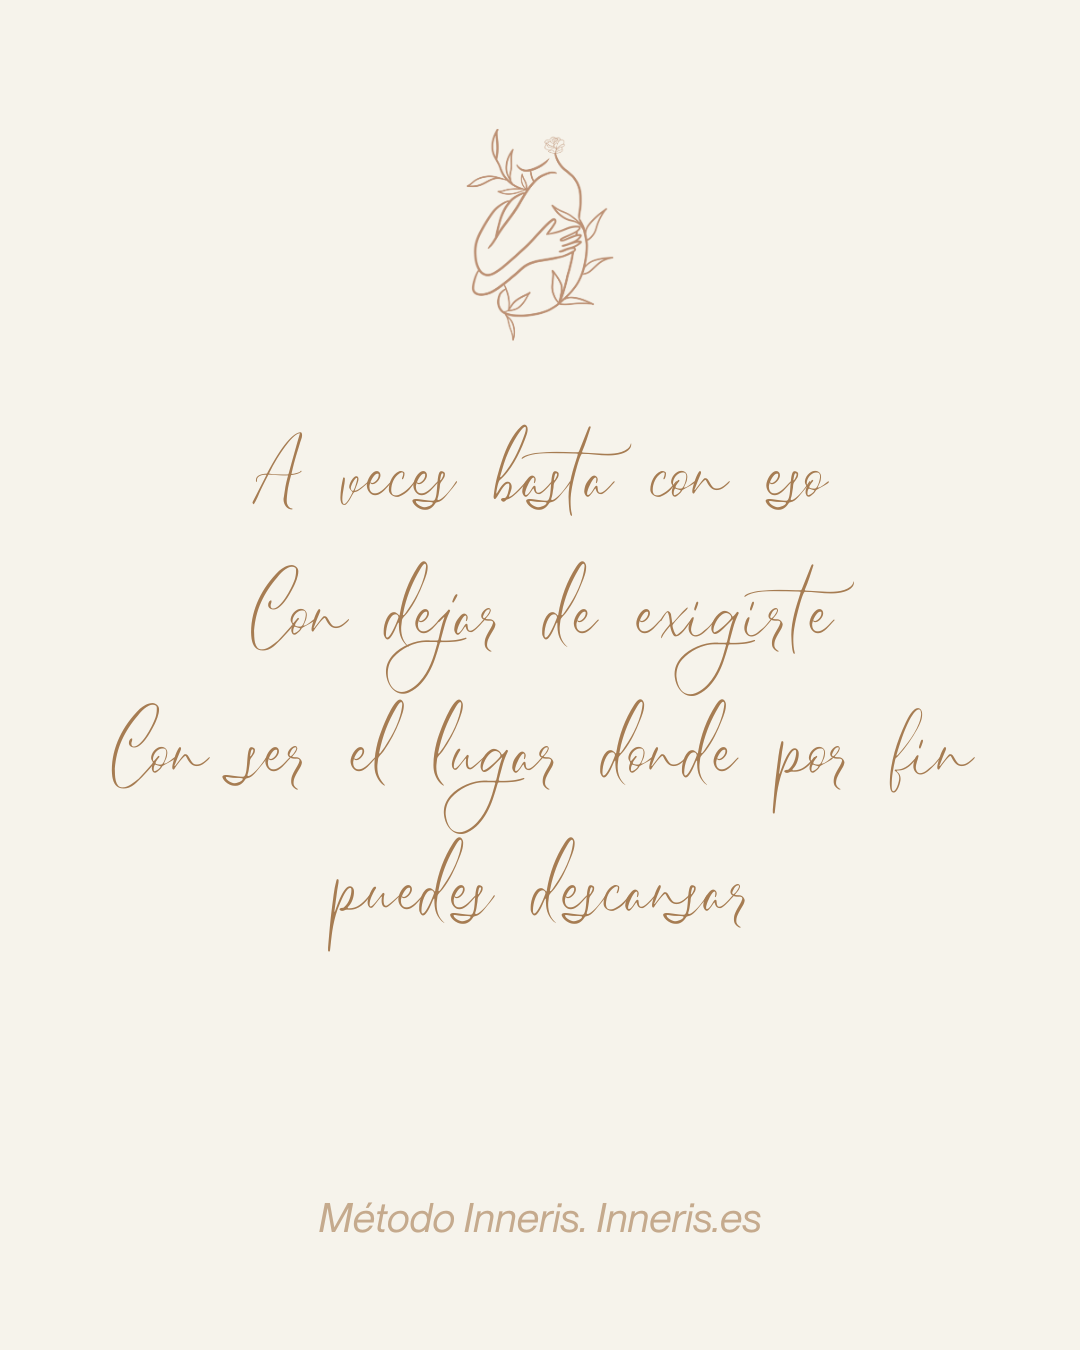 A veces basta con eso
Con dejar de exigirte
Con ser el lugar donde por fin
puedes descansar
Método Inneris. Inneris.es